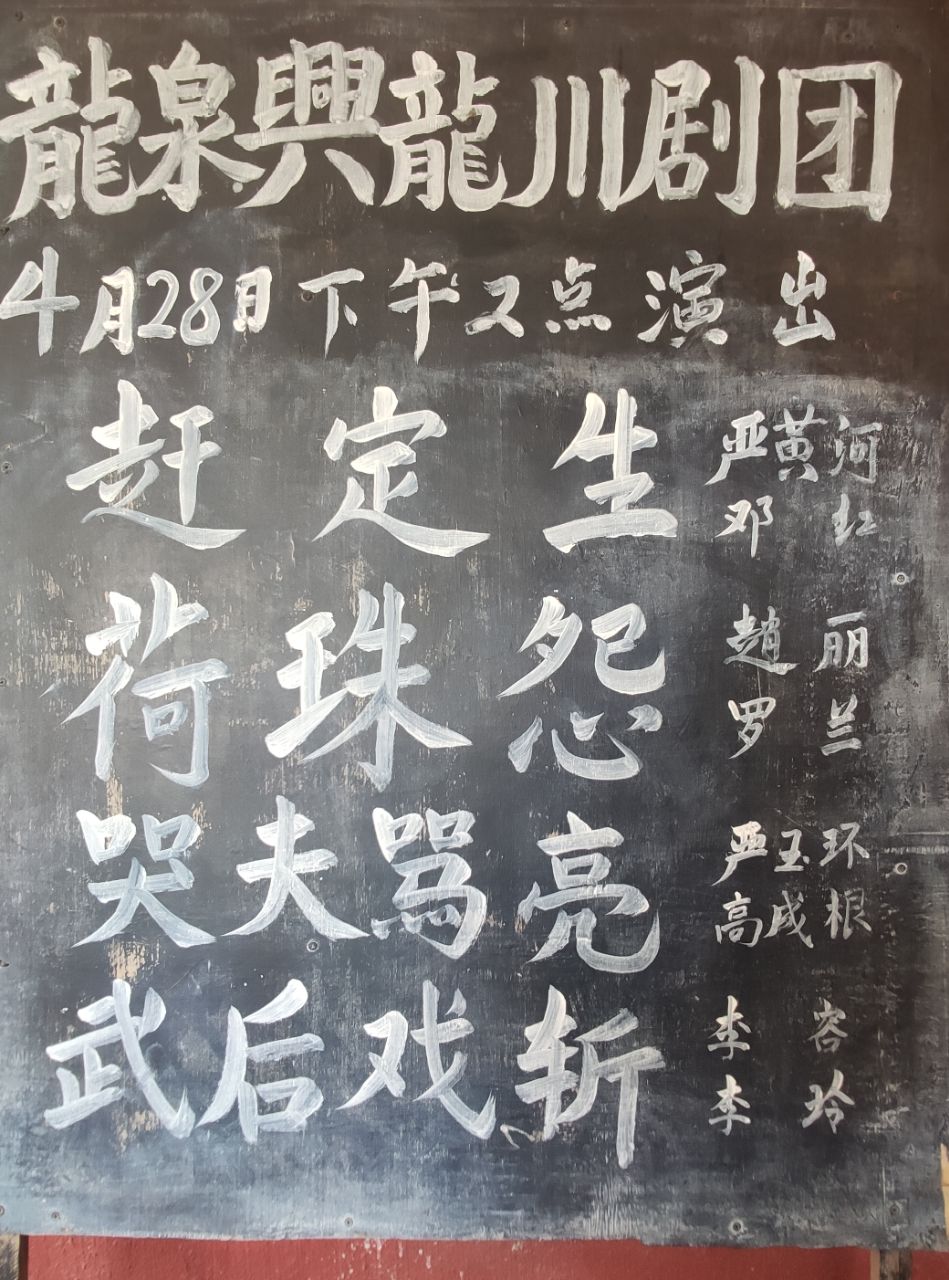 龍泉興龍川剧团
4月28日下午2点演出
赶定生 严黄河 邓红
荷珠怨 赵丽 罗兰
哭夫骂亮 严玉环 高成根
武后戏斩 李容 李玲